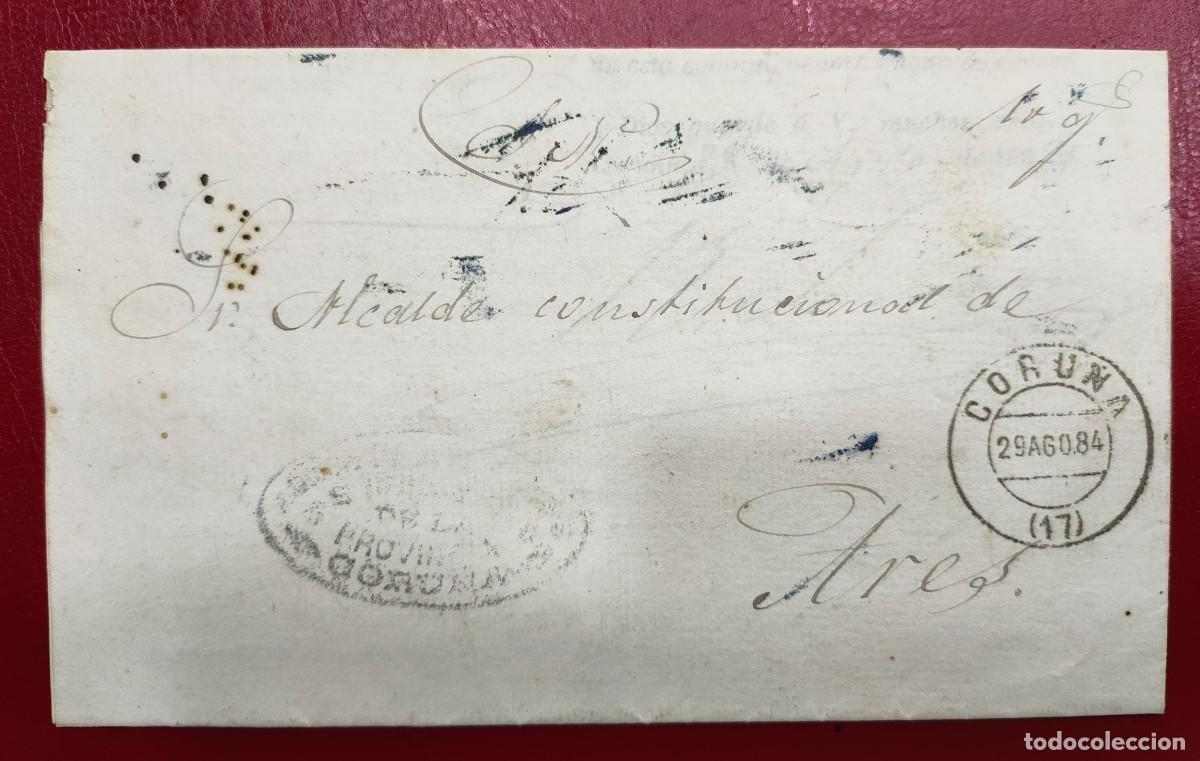 S. N.
Sr. Alcalde constitucional de
Ares.
CORUÑA
29AGO.84
(17)
DE LA
PROVINCIA
CORUÑA
todocoleccion